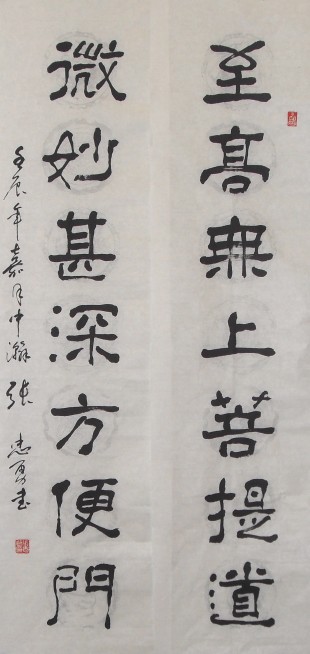 至高無上菩提道
微妙甚深方便門
壬辰年嘉月中瀚張忠勇書